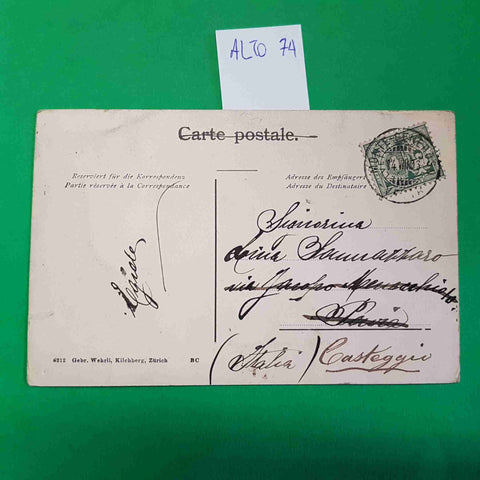 ALTO 74
Carte postale.
Reserviert für die Korrespondenz
Partie réservée à la Correspondance
Adresse des Empfängers
Adresse du Destinataire
Signorina
Sannazzaro
via Jacopo Menocchio
Pavia
(Italia) Casteggio
6212 Gebr. Wehrli, Kilchberg, Zürich BC